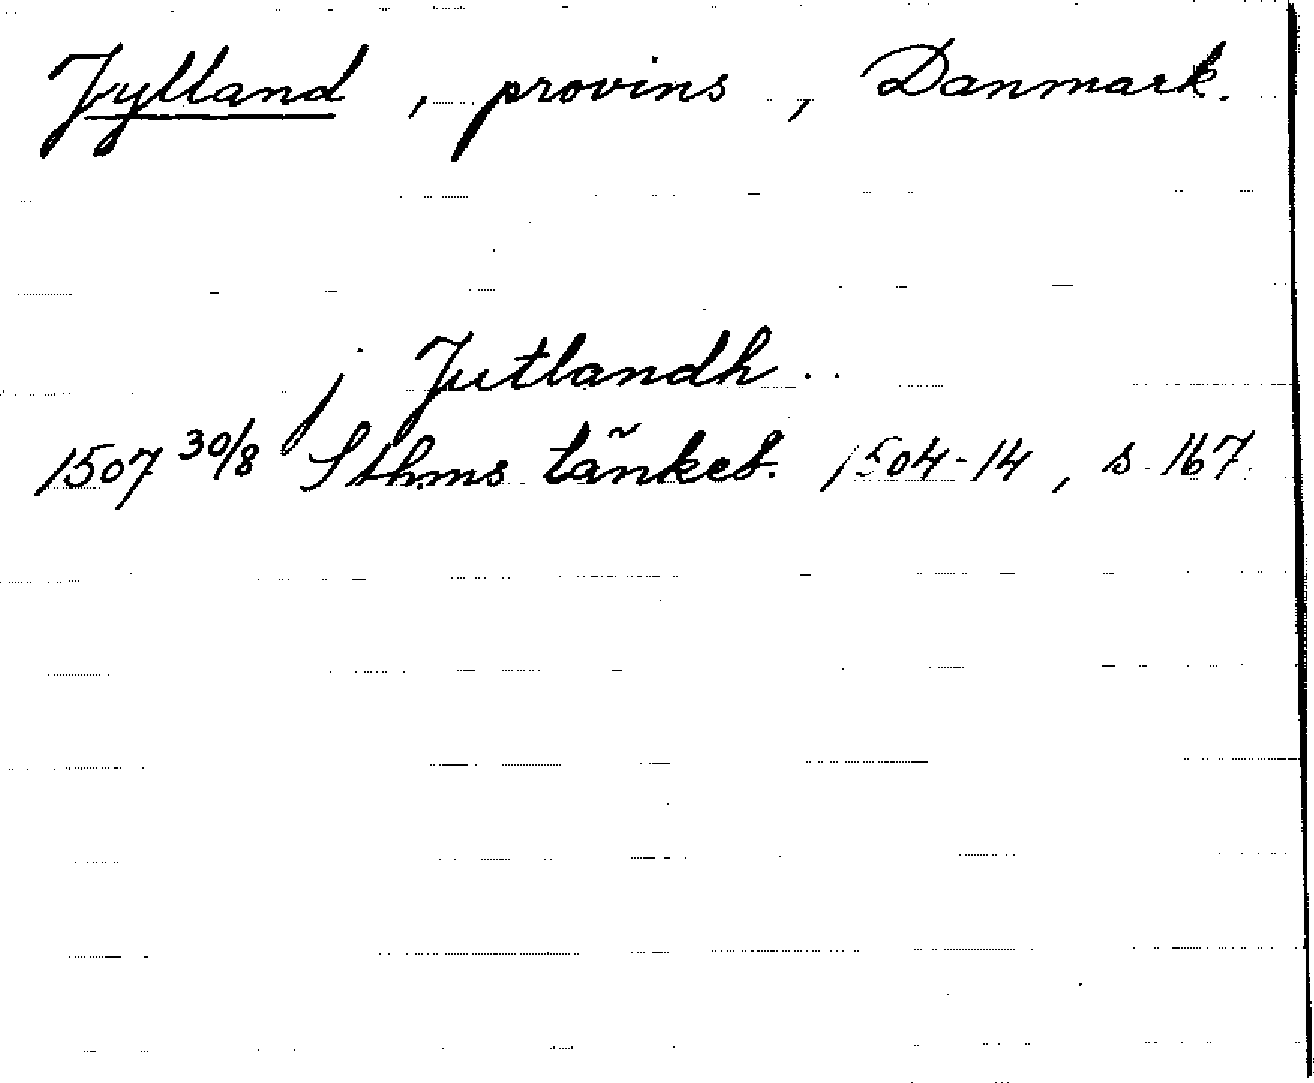 Jylland, provins, Danmark.
j Jutlandh
1507 30/8 Sthms tänkeb. 1504-14, s 167